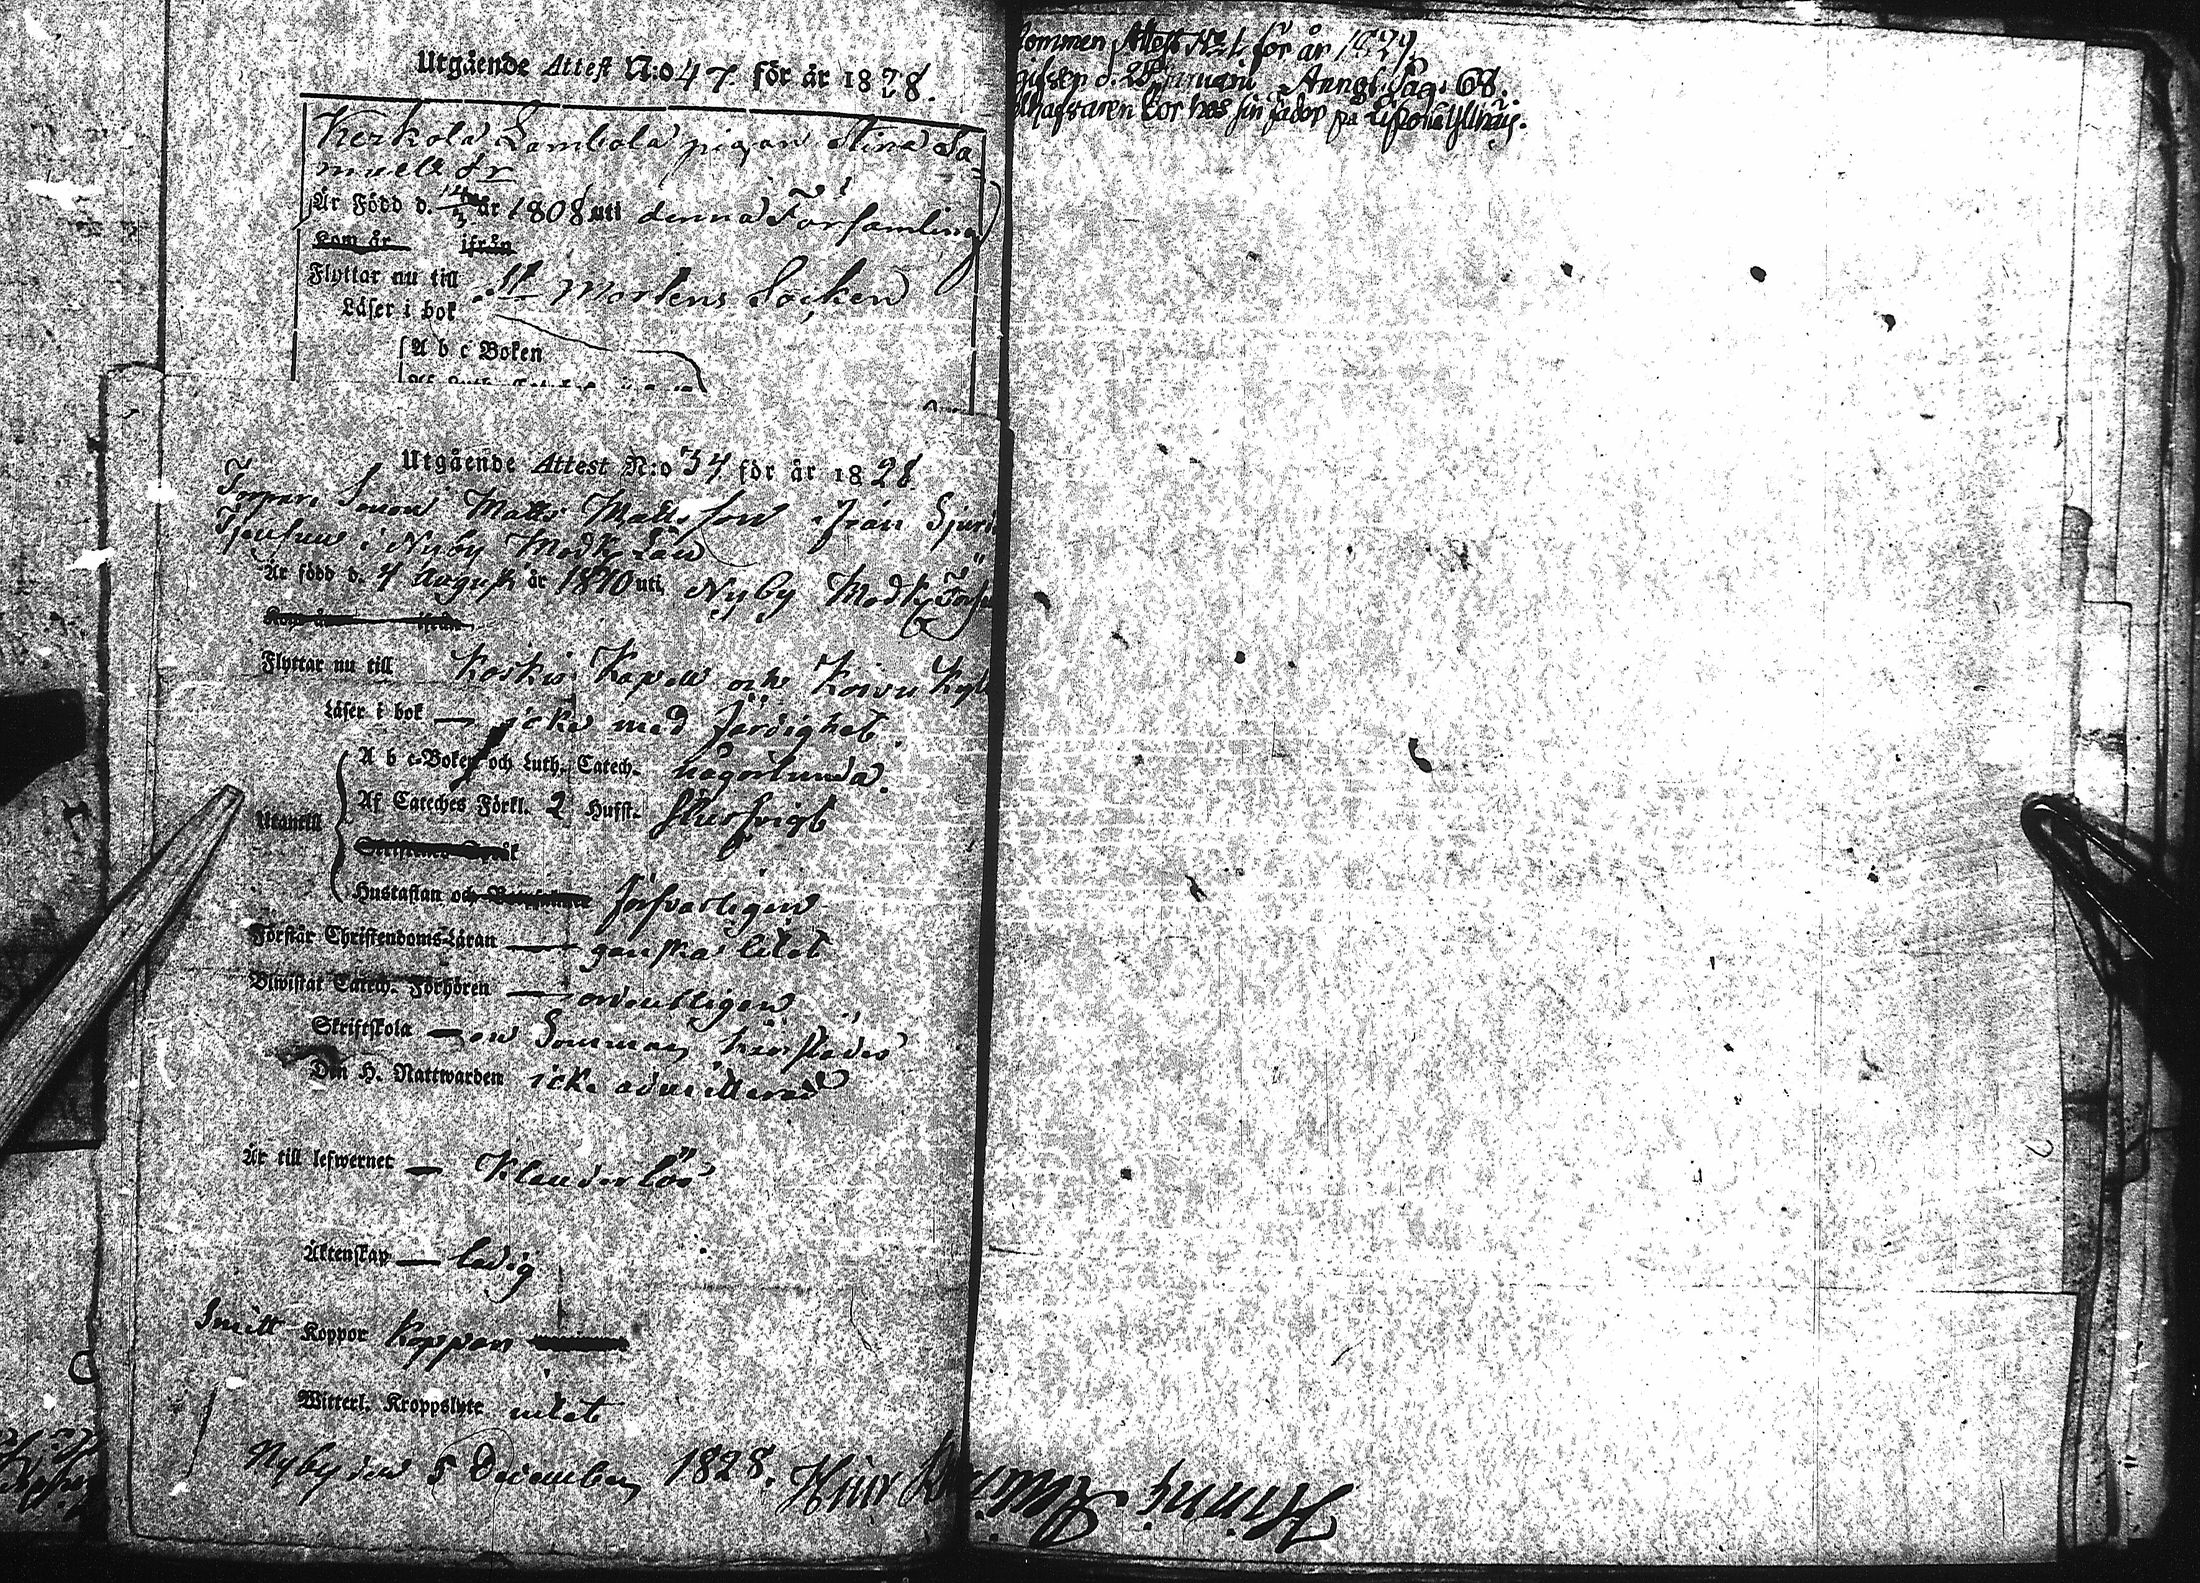 Utgående Attest N:o 47. för år 1828.
Kerkola Lambola pigan Stina Sa-
muels dr
Är Född d. 14/2 år 1808 uti denna Församling
Kom år ifrån
Flyttar nu till St Mortens Socken
Läser i bok
A b c Boken
Utgående Attest N:o 34 för år 1828.
Torpare Sonen Matts Mattsson ifrån
i Nyby Modk
Är född d. 4 August år 1810 uti Nyby Modk
Kom år ifrån
Flyttar nu till Koskis Kapell och Koivu
Läser i bok — icke med färdighet.
A b c-Boken och Luth. Catech. någorlunda.
Utantill Af Cateches Förkl. 2 Hufst.
Skriftenes Språk
Hustaflan och försvarligen
Förstår Christendoms-Läran — ganska litet
Biwistat Catech. Förhören — ordentligen
Skriftskola — en Sommar härstädes
Den H. Nattwarden icke admitterad
Är till lefwernet — Klanderlös
Äktenskap — ledig
Smitt Koppor Koppor
Witterl. Kroppslyte intet
Nyby den 5 December 1828. Hinr
kommen Attest No 1. för år 1829.
d. 25 Januari Pag. 68.
bor hos sin fader på